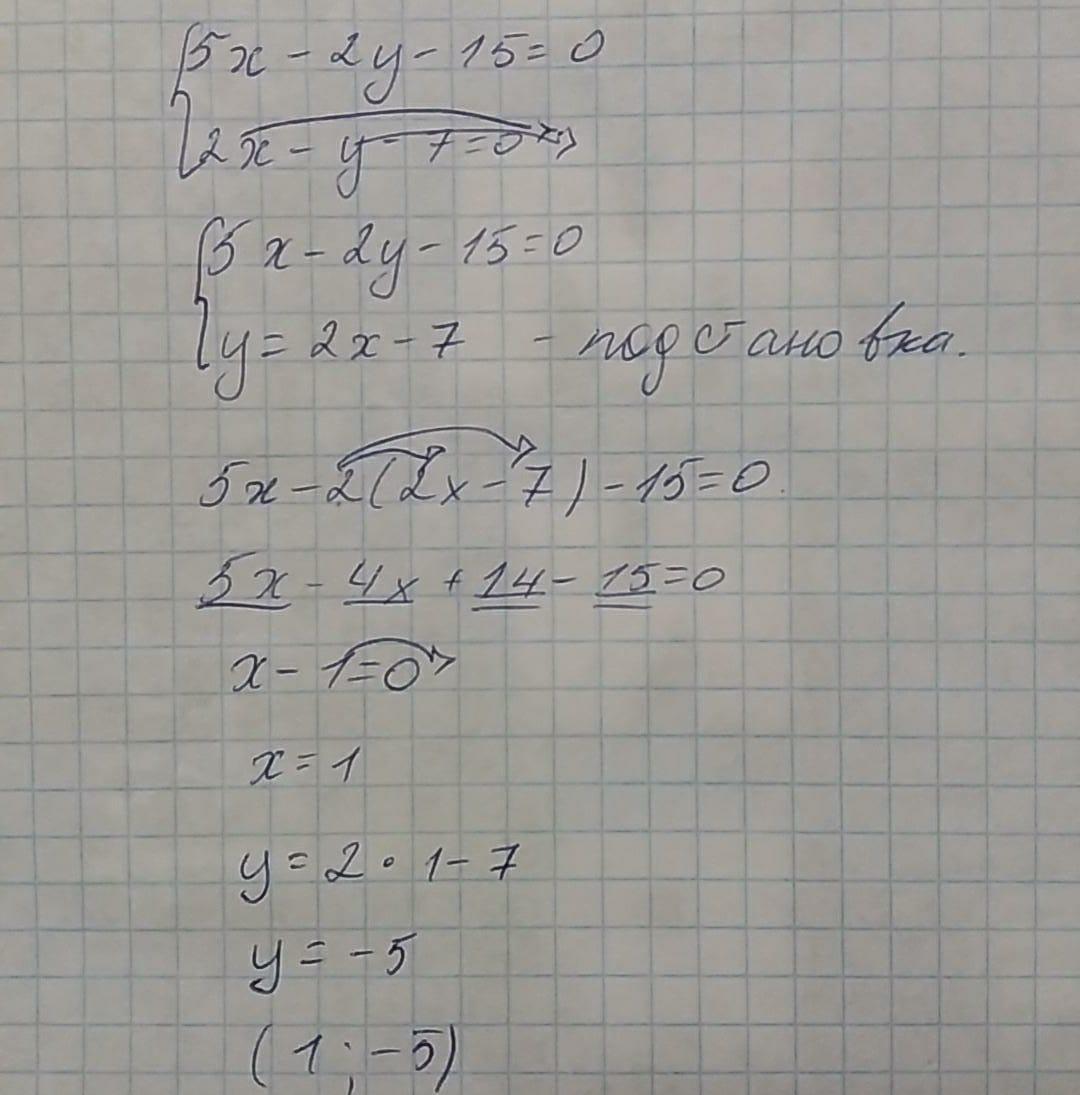 5x - 2y - 15 = 0
2x - y - 7 = 0
5x - 2y - 15 = 0
y = 2x - 7 - подстановка.
5x - 2(2x - 7) - 15 = 0
5x - 4x + 14 - 15 = 0
x - 1 = 0
x = 1
y = 2 · 1 - 7
y = -5
(1 ; -5)